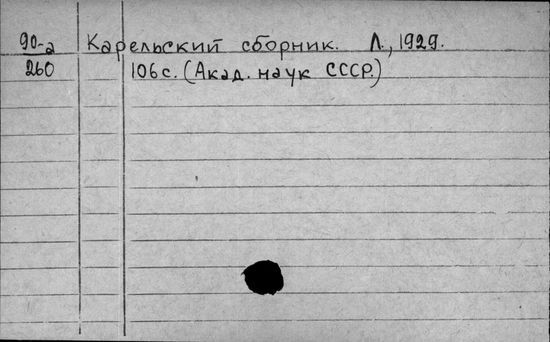 90-а Карельский сборник. Л., 1929.
260 106 с. (Акад. наук СССР.)